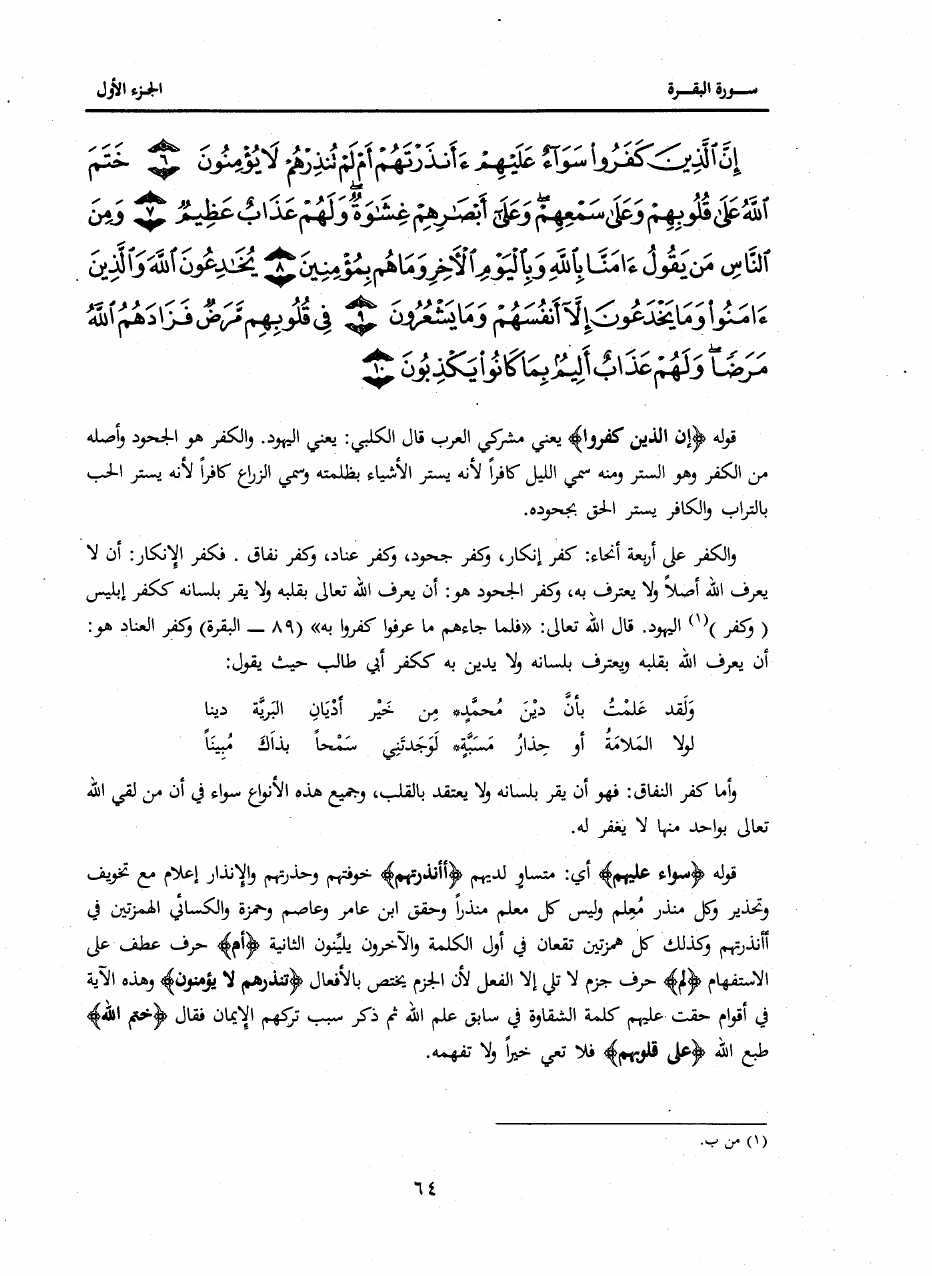 سـورة البقـرة
الجزء الأول
إِنَّ ٱلَّذِينَ كَفَرُوا۟ سَوَآءٌ عَلَيْهِمْ ءَأَنذَرْتَهُمْ أَمْ لَمْ تُنذِرْهُمْ لَا يُؤْمِنُونَ ٦ خَتَمَ
ٱللَّهُ عَلَىٰ قُلُوبِهِمْ وَعَلَىٰ سَمْعِهِمْ ۖ وَعَلَىٰٓ أَبْصَـٰرِهِمْ غِشَـٰوَةٌ ۖ وَلَهُمْ عَذَابٌ عَظِيمٌ ٧ وَمِنَ
ٱلنَّاسِ مَن يَقُولُ ءَامَنَّا بِٱللَّهِ وَبِٱلْيَوْمِ ٱلْـَٔاخِرِ وَمَا هُم بِمُؤْمِنِينَ ٨ يُخَـٰدِعُونَ ٱللَّهَ وَٱلَّذِينَ
ءَامَنُوا۟ وَمَا يَخْدَعُونَ إِلَّآ أَنفُسَهُمْ وَمَا يَشْعُرُونَ ٩ فِى قُلُوبِهِم مَّرَضٌ فَزَادَهُمُ ٱللَّهُ
مَرَضًا ۖ وَلَهُمْ عَذَابٌ أَلِيمٌۢ بِمَا كَانُوا۟ يَكْذِبُونَ ١٠
قوله ﴿إن الذين كفروا﴾ يعني مشركي العرب قال الكلبي: يعني اليهود. والكفر هو الجحود وأصله
من الكفر وهو الستر ومنه سمي الليل كافراً لأنه يستر الأشياء بظلمته وسمي الزراع كافراً لأنه يستر الحب
بالتراب والكافر يستر الحق بجحوده.
والكفر على أربعة أنحاء: كفر إنكار، وكفر جحود، وكفر عناد، وكفر نفاق . فكفر الإنكار: أن لا
يعرف الله أصلاً ولا يعترف به، وكفر الجحود هو: أن يعرف الله تعالى بقلبه ولا يقر بلسانه ككفر إبليس
( وكفر )(١) اليهود. قال الله تعالى: «فلما جاءهم ما عرفوا كفروا به» (٨٩ — البقرة) وكفر العناد هو:
أن يعرف الله بقلبه ويعترف بلسانه ولا يدين به ككفر أبي طالب حيث يقول:
وَلَقد عَلمْتُ بأنَّ ديْنَ مُحمَّدٍ* مِن خَيْر أدْيَانِ البَريَّة دينا
لولا المَلامَةُ أو حِذارُ مَسَبَّةٍ* لَوَجَدتَنِي سَمْحاً بذاَكَ مُبِينَاً
وأما كفر النفاق: فهو أن يقر بلسانه ولا يعتقد بالقلب، وجميع هذه الأنواع سواء في أن من لقي الله
تعالى بواحد منها لا يغفر له.
قوله ﴿سواء عليهم﴾ أي: متساوٍ لديهم ﴿أأنذرتهم﴾ خوفتهم وحذرتهم والإنذار إعلام مع تخويف
وتحذير وكل منذر مُعِلم وليس كل معلم منذراً وحقق ابن عامر وعاصم وحمزة والكسائي الهمزتين في
أأنذرتهم وكذلك كل همزتين تقعان في أول الكلمة والآخرون يليِّنون الثانية ﴿أم﴾ حرف عطف على
الاستفهام ﴿لم﴾ حرف جزم لا تلي إلا الفعل لأن الجزم يختص بالأفعال ﴿تنذرهم لا يؤمنون﴾ وهذه الآية
في أقوام حقت عليهم كلمة الشقاوة في سابق علم الله ثم ذكر سبب تركهم الإيمان فقال ﴿ختم الله﴾
طبع الله ﴿على قلوبهم﴾ فلا تعي خيراً ولا تفهمه.
(١) من ب.
٦٤